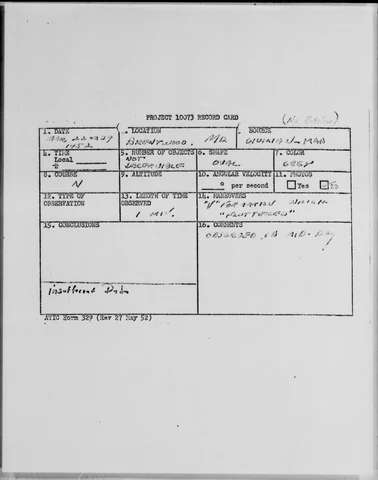 PROJECT 10073 RECORD CARD
1. DATE
1952
2. LOCATION
BRENTWOOD, MD
3. SOURCE
4. TIME
Local
5. NUMBER OF OBJECTS
NOT
DISCERNIBLE
6. SHAPE
OVAL
7. COLOR
GREY
8. COURSE
N
9. ALTITUDE
10. ANGULAR VELOCITY
° per second
11. PHOTOS
Yes
12. TYPE OF
OBSERVATION
13. LENGTH OF TIME
OBSERVED
1 MIN.
14. MANEUVERS
"V" FORMATION WHICH
"FLUTTERED"
15. CONCLUSIONS
Insufficient Data
16. COMMENTS
OBSERVED IN MID-DAY
ATIC Form 329 (Rev 27 May 52)